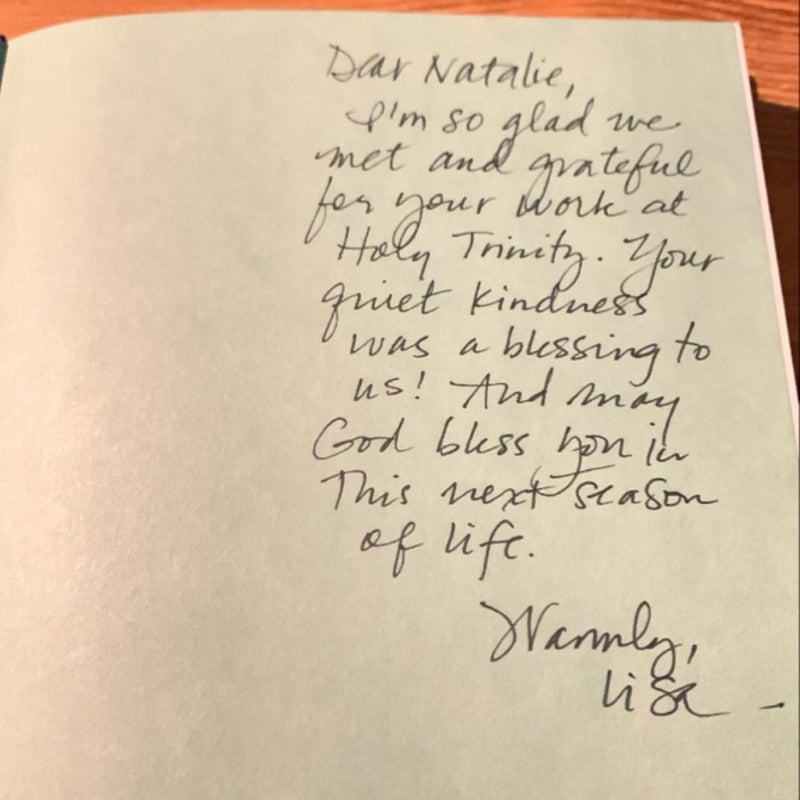 Dear Natalie,
I'm so glad we
met and grateful
for your work at
Holy Trinity. Your
quiet kindness
was a blessing to
us! And may
God bless you in
This next season
of life.
Warmly,
Lisa -